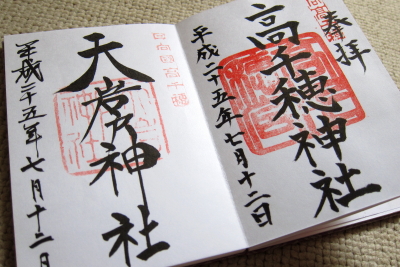 奉拝
高千穂神社
平成二十五年七月十二日
日向国高千穂
天岩戸神社
平成二十五年七月十二日